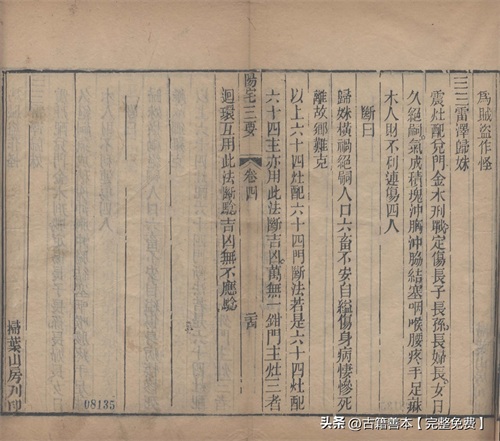 為賊盜作怪
三三雷澤歸妹
震灶配兌門金木刑戰定傷長子長孫長婦長女日
久絕嗣氣成積塊沖胸沖脇結塞咽喉腰疼手足麻
木人財不利連傷四人
斷曰
歸妹橫禍絕嗣人口六畜不安自縊傷身病悽慘死
離故鄉難克
以上六十四灶配六十四門斷法若是六十四灶配
六十四主亦用此法斷吉凶萬無一錯門主灶三者
陽宅三要 卷四
迴環互用此法斷驗吉凶無不應驗
掃葉山房刊印
08135
头条 @古籍善本【完整免费】